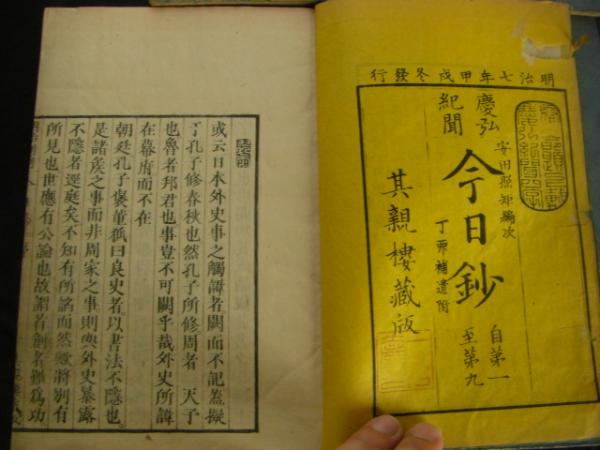 明治七年甲戌冬發行
慶弘
紀聞
安田照矩編次
今日鈔
丁卯補遺附
其親樓藏版
自第一
至第九
或云日本外史事之觸諱者闕而不記蓋擬
于孔子修春秋也然孔子所修周者天子
也魯者邦君也事豈不可闕乎哉外史所諱
在幕府而不在
朝廷孔子褒董狐曰良史者以書法不隱也
是諸矦之事而非周家之事則與外史暴露
不隱者逕庭矣不知有所諂而然歟將別有
所見也世應有公論也故謂首創者難為功